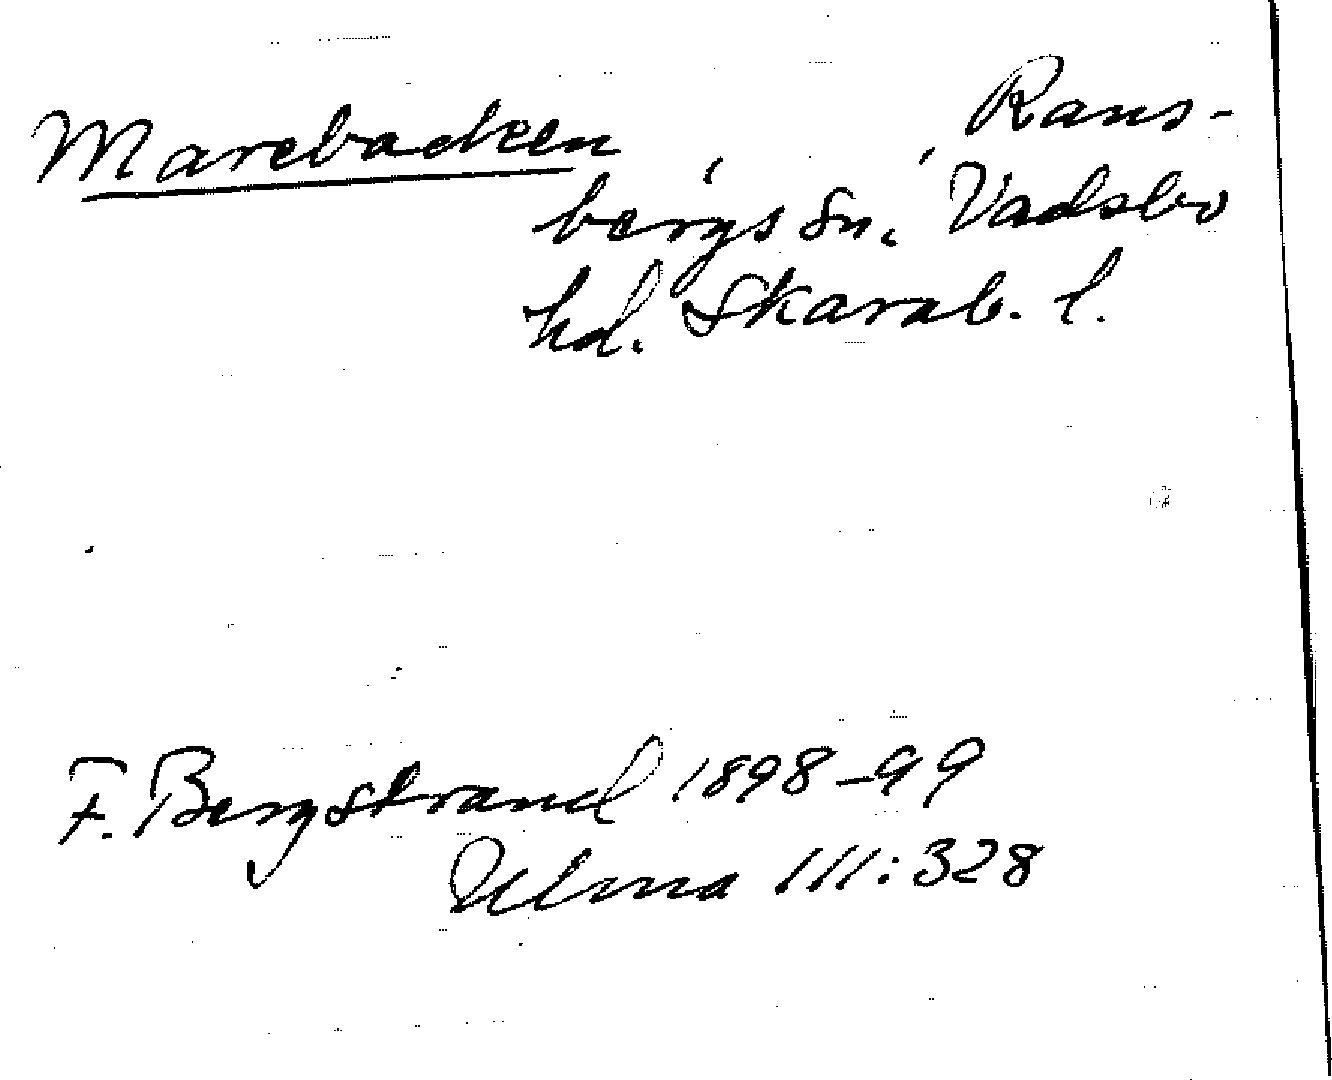 Marebacken , , Rans-
bergs sn. Vadsbo
hd. Skarab. l.
F. Bergstrand 1898-99
Ulma 111:328